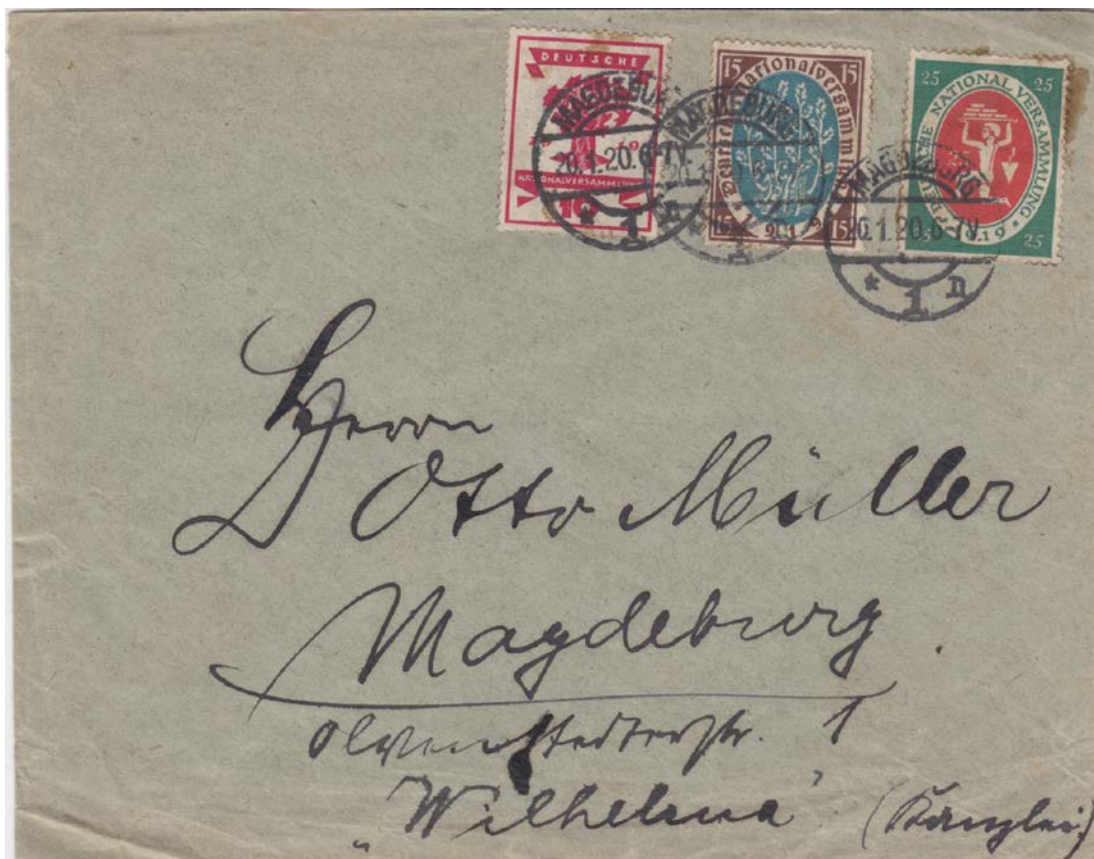 DEUTSCHE
10
NATIONALVERSAMMLUNG
15 15
Nationalversammlung
15 1919 15
25 25
DEUTSCHE NATIONAL VERSAMMLUNG
1919
25 25
MAGDEBURG
20.1.20.6-7V.
* 1 n
MAGDEBURG
1
MAGDEBURG
20.1.20.6-7V.
* 1 n
Herrn
Otto Müller
Magdeburg.
Olvenstedterstr. 1
„Wilhelma" (Kanzlei)